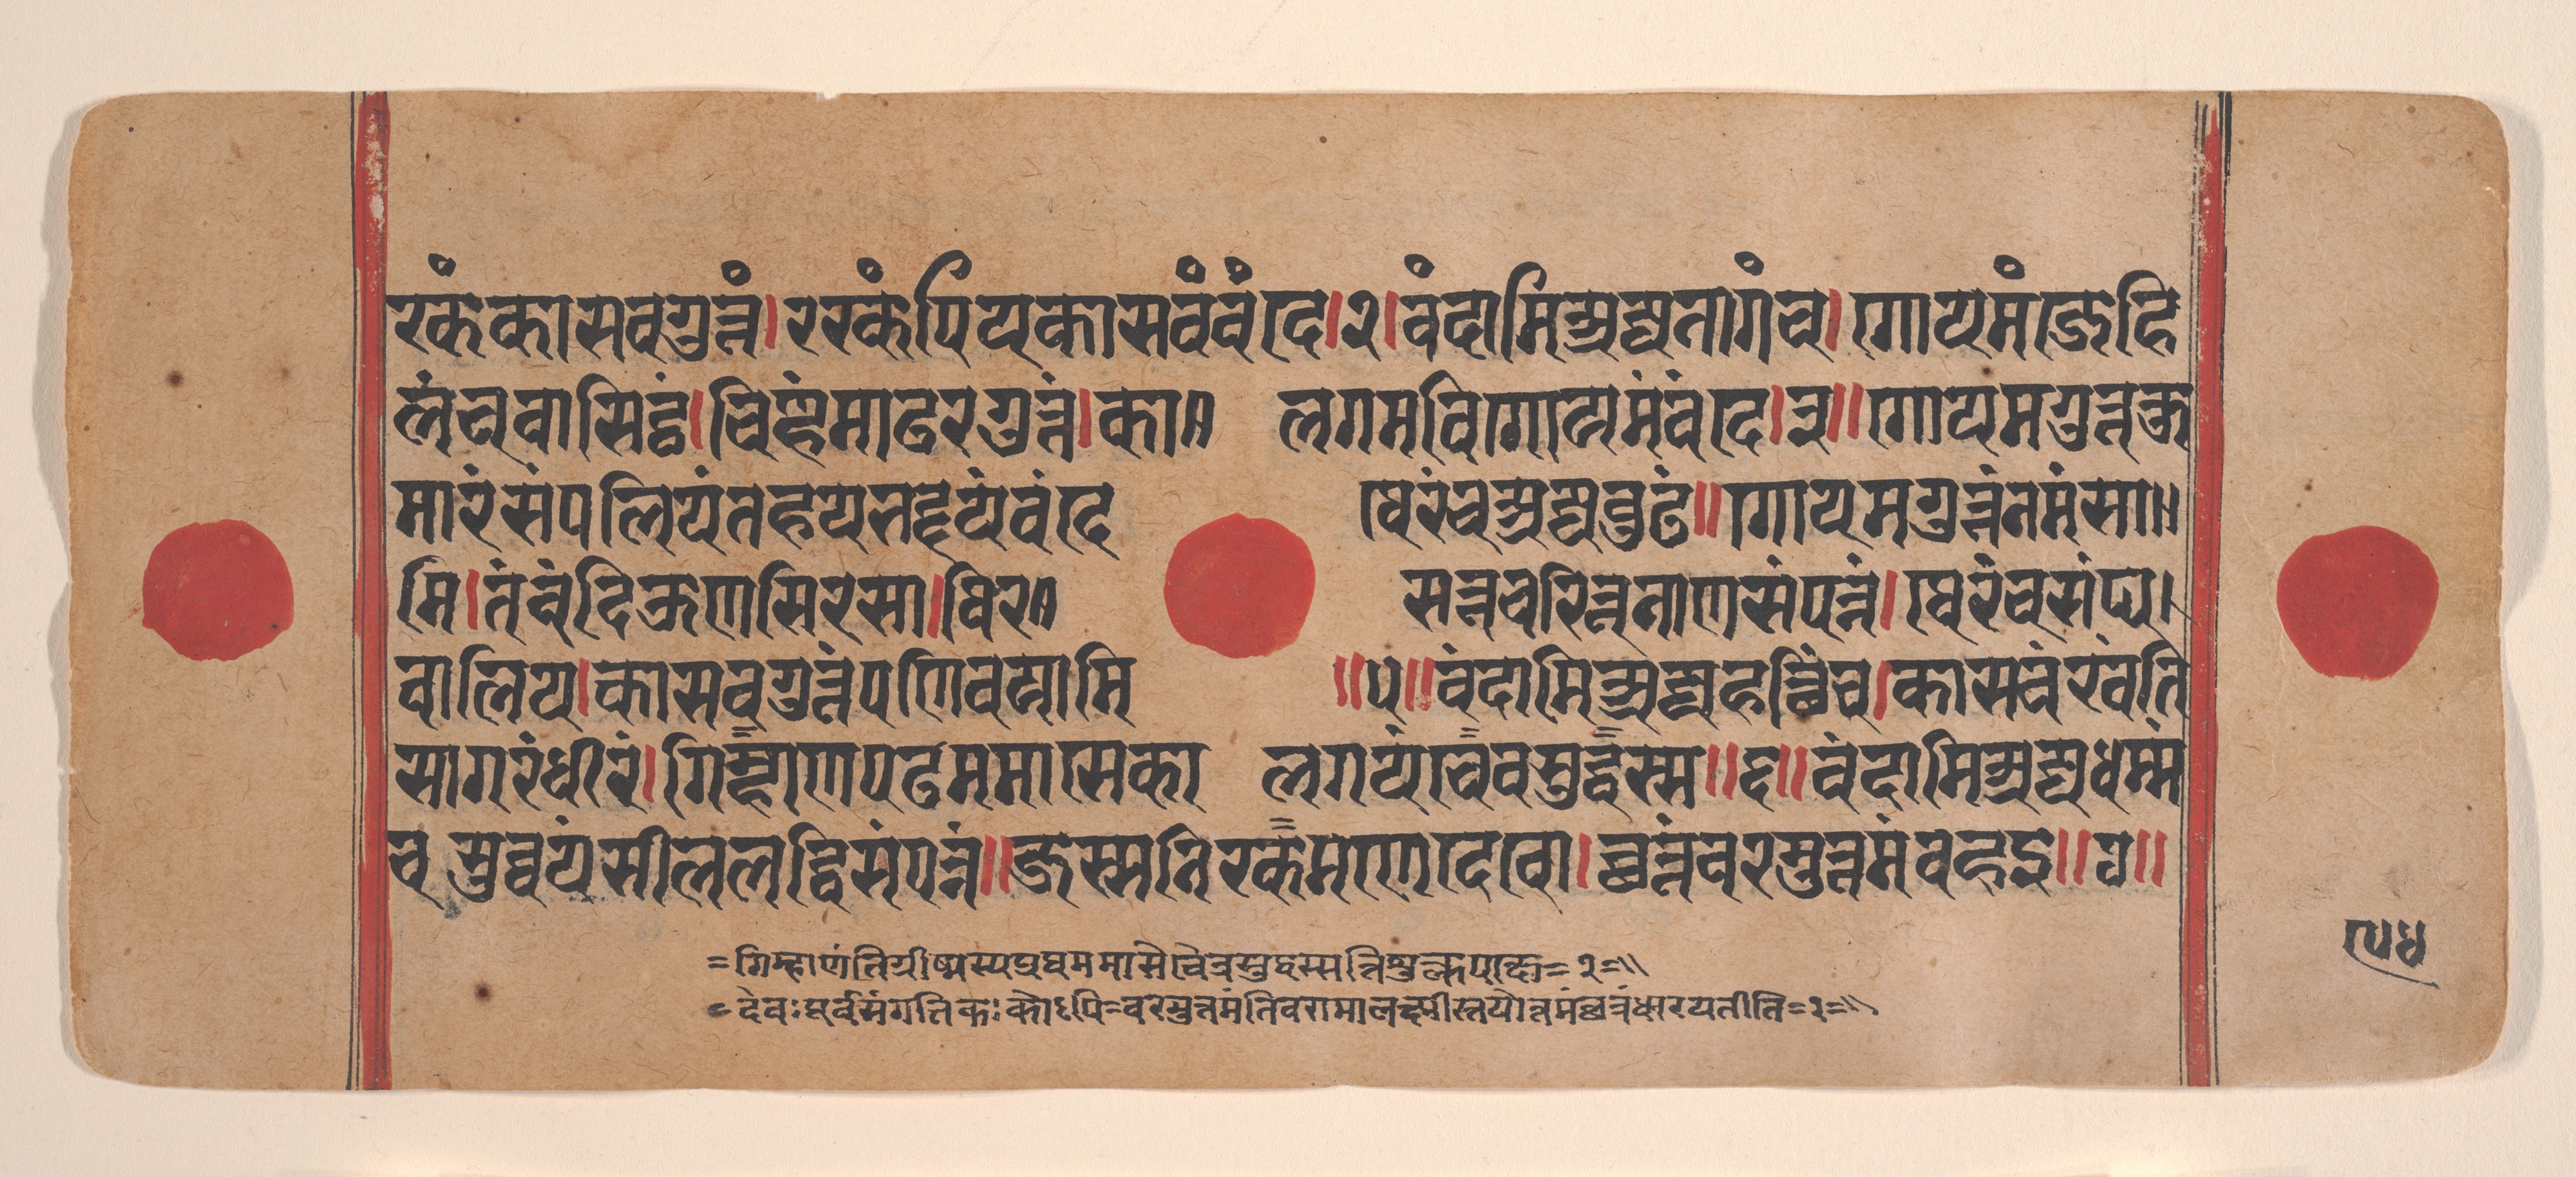 रकंकासवगुत्तं।ररकंपियकासवंवंदे।२।वंदामिअज्जनागंच।गोयमंजेहि
लंचवासिट्ठं।विण्हुंमाढरगुत्तं।का॥ लगमविगोयमंवंदे।३॥गोयमगुत्तकु
मारंसंपलियंतहयभद्दयंवंदे थेरंचअज्जवुढं॥गोयमगुत्तंनमंसा॥
मि।तंवंदिऊणसिरसा।थिर॥ सत्तचरित्तनाणसंपन्नं।थेरंचसंघ।
वालिय।कासवगुत्तंपणिवयामि ॥५॥वंदामिअज्जहत्थिंच।कासवंखंति
सागरंधीरं।गिम्हाणपढममासेका लगयंचेवसुद्धस्स॥६॥वंदामिअज्जधम्मं
च सुव्वयंसीललद्धिसंपन्नं॥जस्सनिरकमणेदेवो।छत्तंवरमुत्तमंवहइ॥७॥
=गिम्हाणंतिग्रीष्मस्यप्रथममासेचैत्रसुद्धस्सत्तिशुक्लपक्षे=१=॥
=देवःपूर्वसंगतिकःकोऽपि=वरमुत्तमंतिवरामालक्ष्मीस्तयोत्तमंछत्रंधारयतीति=२=॥